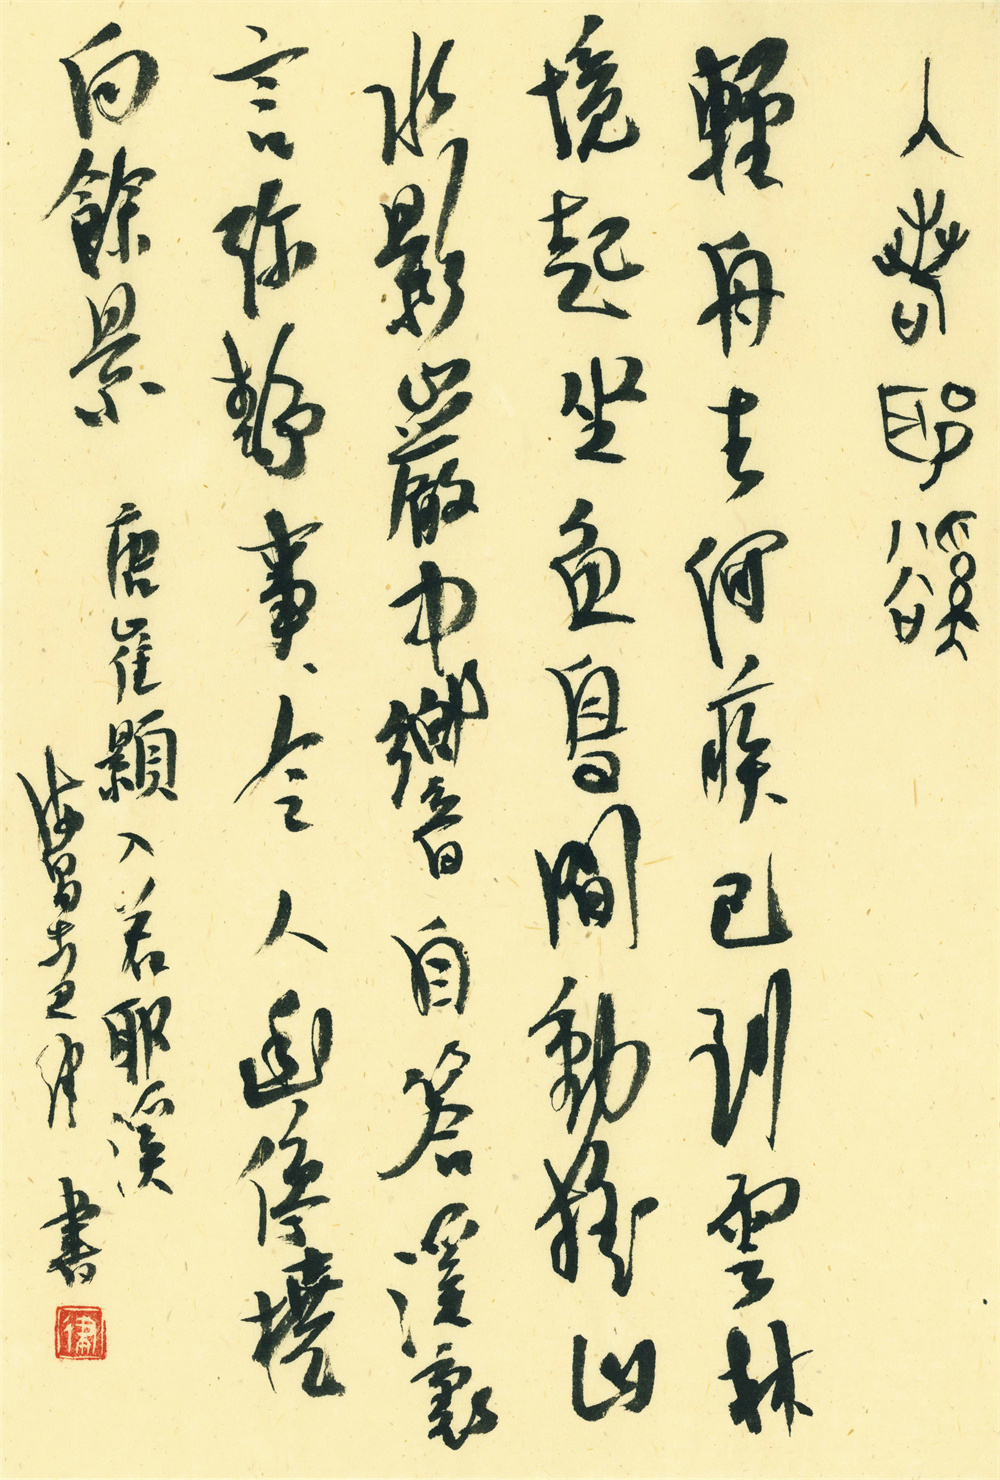 入若耶谿
輕舟去何疾已到雲林
境起坐魚鳥間動摇山
水影巖中響自答溪裏
言弥靜事、令人幽停橈
向餘景 唐崔顥入若耶溪
海昌 書